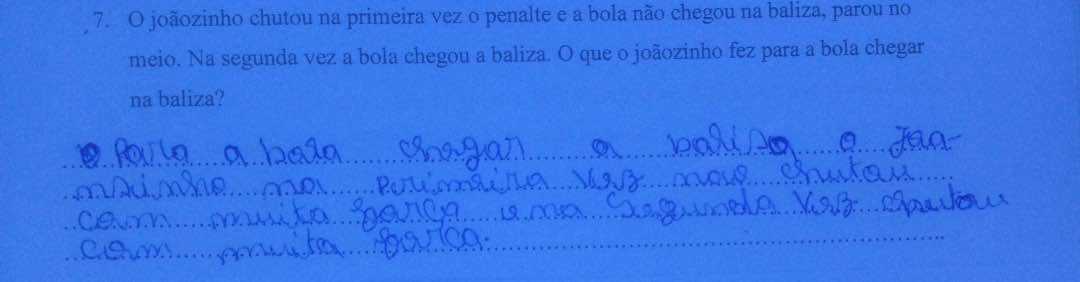 7. O joãozinho chutou na primeira vez o penalte e a bola não chegou na baliza, parou no
meio. Na segunda vez a bola chegou a baliza. O que o joãozinho fez para a bola chegar
na baliza?
Para a bola chegar a baliza o Joa-
nzinho na primeira vez não chutou
com muita força e na Segunda vez chutou
com muita força.